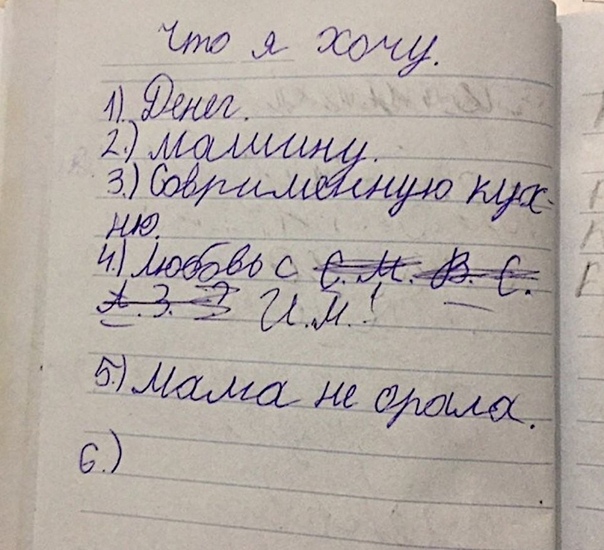 Что я хочу.
1.) Денег.
2.) Машину.
3.) Соврименную кух-
ню.
4.) Любовь с С. М. В. С.
А. З. И. М.!
5.) Мама не орала.
6.)